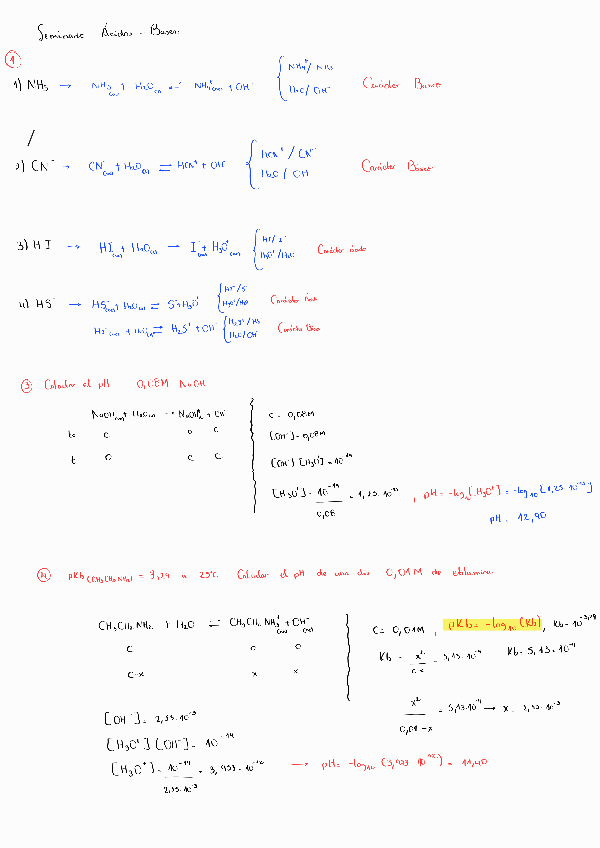 Seminario Ácidos - Bases
1
1) NH3 → NH3(ac) + H2O(l) ⇌ NH4+(ac) + OH- { NH4+ / NH3
H2O / OH- Carácter Básico
2) CN- → CN-(ac) + H2O(l) ⇌ HCN + OH- { HCN / CN-
H2O / OH Carácter Básico
3) HI → HI(ac) + H2O(l) → I-(ac) + H3O+(ac) { HI / I-
H3O+ / H2O Carácter ácido
4) HS- → HS-(ac) + H2O(l) ⇌ S- + H3O+ { HS- / S-
H3O+ / H2O Carácter
HS-(ac) + H2O(l) ⇌ H2S + OH- { H2S / HS-
H2O / OH- Carácter
3 Calcular el pH 0,08M NaOH
c = 0,08M
to c 0 c [OH-] = 0,08M
t 0 c c [OH-] [H3O+] = 10^-14
[H3O+] = 10^-14 / 0,08 = 1,25·10^-13 , pH = -log10 [H3O+] = -log10 [1,25·10^-13]
pH = 12,90
pKb (CH3CH2NH2) = 3,29 a 25ºC Calcular el pH de una dis 0,01M de etilamina.
CH3CH2NH2 + H2O ⇌ CH3CH2NH3+(ac) + OH-(ac)
c 0 0
c-x x x
c = 0,01M , pKb = -log10 (Kb) , Kb = 10^-3,29
Kb = x² / c-x = 5,13·10^-4 Kb = 5,13·10^-4
x² / 0,01-x = 5,13·10^-4 → x = 2,55·10^-3
[OH-] = 2,55·10^-3
[H3O+] [OH-] = 10^-14
[H3O+] = 10^-14 / 2,55·10^-3 = 3,933·10^-12 → pH = -log10 (3,933·10^-12) = 11,40